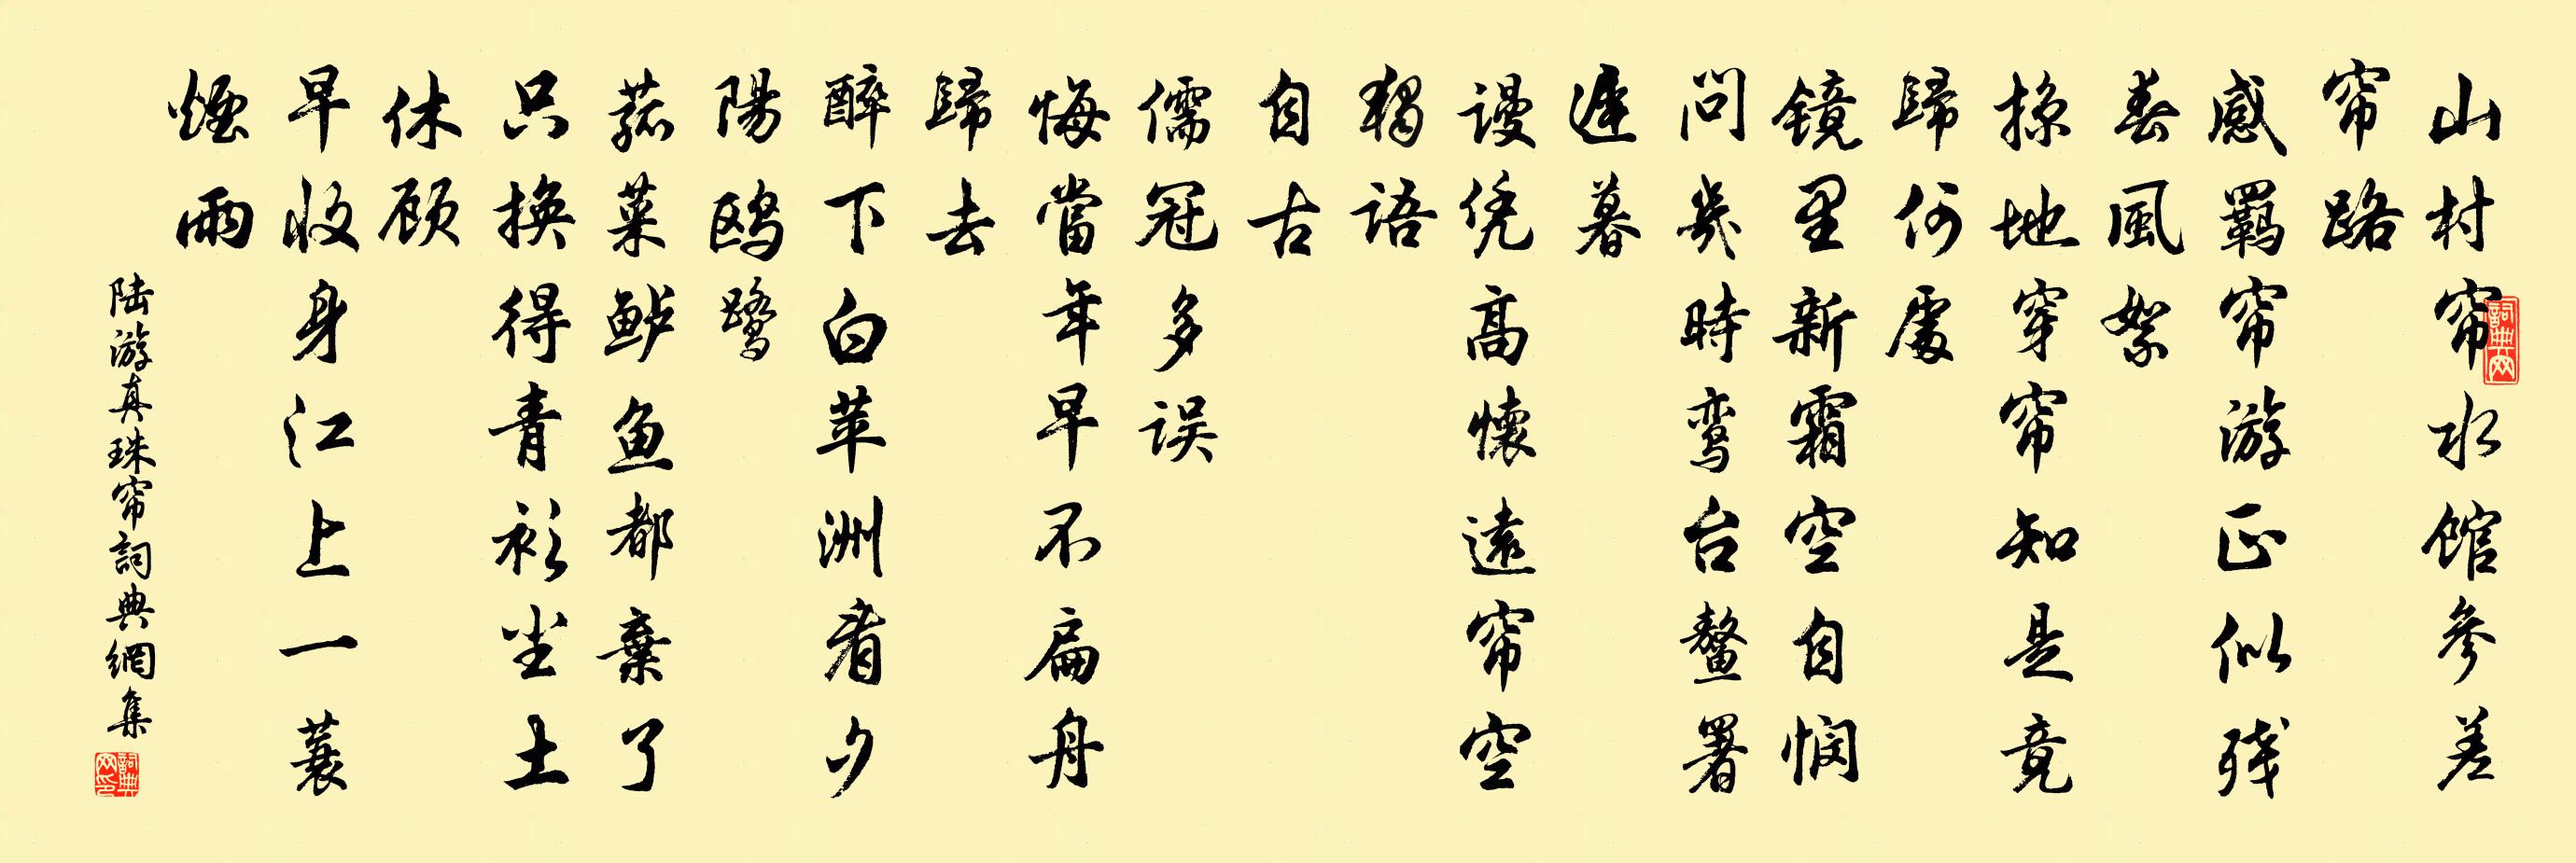 山村帘水馆参差
帘路
感羁帘游正似残
春風絮
掠地穿帘知是竟
歸何處
镜里新霜空自悯
问幾時鸾台鳌署
遲暮
谩凭高懷遠帘空
獨语
自古
儒冠多误
悔當年早不扁舟
歸去
醉下白苹洲看夕
陽鸥鹭
菰菜鲈鱼都棄了
只换得青衫尘土
休顾
早收身江上一蓑
煙雨
陆游真珠帘詞典網集
詞典网
詞典网印